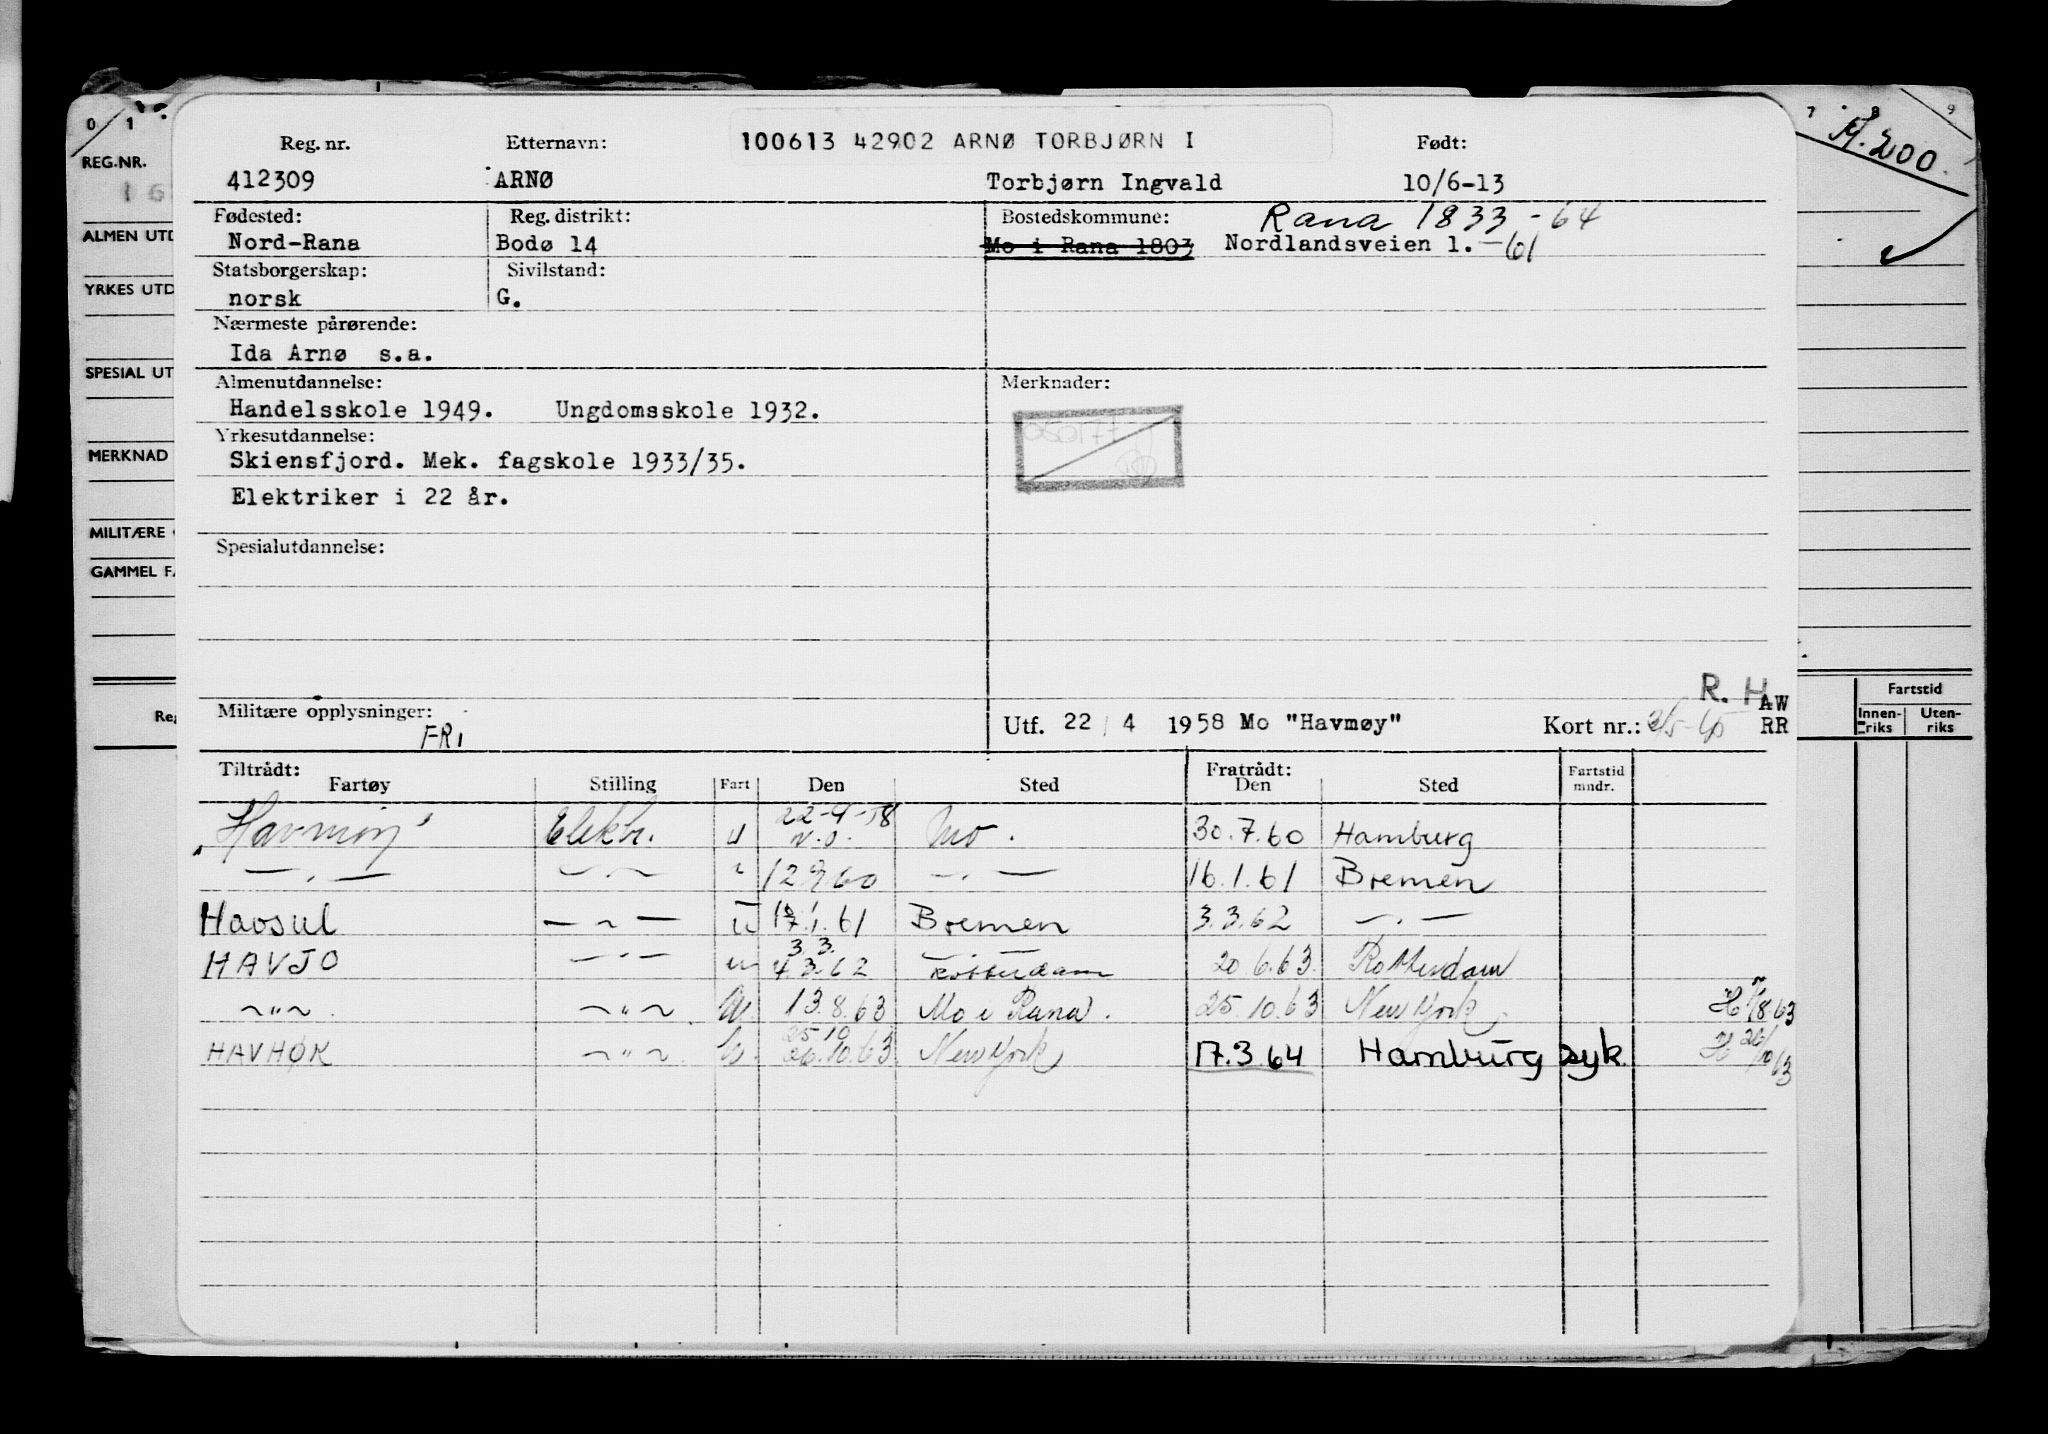 0 1 7 8 9
REG.NR.
ALMEN UTD
YRKES UTD
SPESIAL UT
MERKNAD
MILITÆRE
GAMMEL FA
Reg
M.200.
Fartstid
Innen-riks Uten-riks
Reg. nr. Etternavn: 100613 42902 ARNØ TORBJØRN I Født:
412309 ARNØ Torbjørn Ingvald 10/6-13
Fødested: Reg. distrikt: Bostedskommune: Rana 1833 - 64
Nord-Rana Bodø 14 Mo i Rana 1803 Nordlandsveien 1. -61
Statsborgerskap: Sivilstand:
norsk G.
Nærmeste pårørende:
Ida Arnø s.a.
Almenutdannelse: Merknader:
Handelsskole 1949. Ungdomsskole 1932.
050177
Yrkesutdannelse:
Skiensfjord. Mek. fagskole 1933/35.
Elektriker i 22 år.
Spesialutdannelse:
R. H AW
Militære opplysninger: FRI Utf. 22 / 4 1958 Mo "Havmøy" Kort nr.: RR
Tiltrådt: Fratrådt: Fartstid
Fartøy Stilling Fart Den Sted Den Sted mndr.
22-4-58
"Havmøy" Elektr. u n.o. Mo. 30.7.60 Hamburg
— " — — " — " 12.9.60 — " — 16.1.61 Bremen
Havsul — " — u 17.1.61 Bremen 3.3.62 — " —
3.3.
HAVJO — " — u 4.3.62 Rotterdam 20.6.63. Rotterdam
— " — — " — u. 13.8.63 Mo i Rana. 25.10.63 New York H /8-63
25.10
HAVHØK — " — u. 26.10.63 New York 17.3.64 Hamburg syk. H 26/10 63